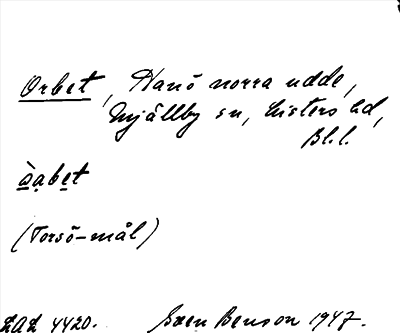 Orbet, Hanö norra udde,
Mjällby sn, Listers hd,
Bl.l.
òạbet
(Torsö-mål)
LAL 4420. Sven Benson 1947.